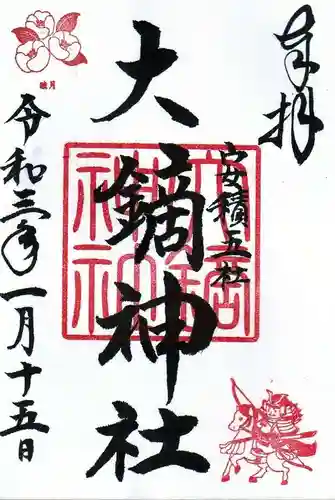 奉拝
安積五社
大鏑神社
令和三年一月十五日
睦月